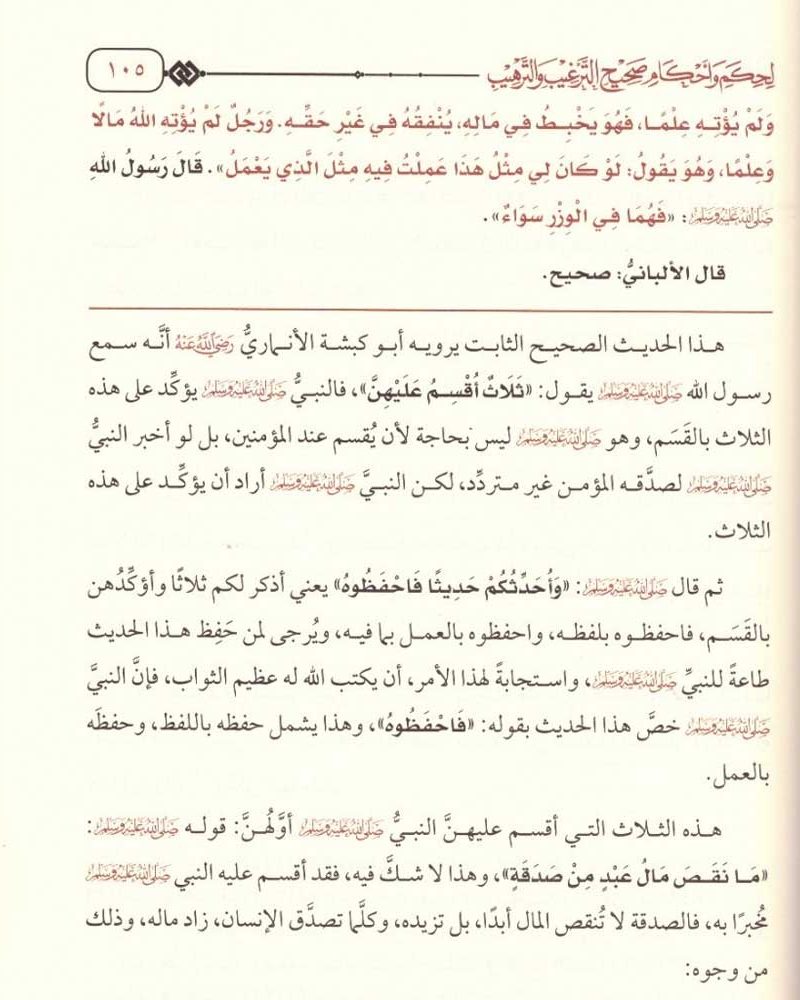 لِحِكَمِ وَأَحْكَامِ صَحِيحِ التَّرْغِيبِ وَالتَّرْهِيبِ ١٠٥
وَلَمْ يُؤْتِهِ عِلْمًا، فَهُوَ يَخْبِطُ فِي مَالِهِ، يُنْفِقُهُ فِي غَيْرِ حَقِّهِ. وَرَجُلٌ لَمْ يُؤْتِهِ اللهُ مَالًا
وَعِلْمًا، وَهُوَ يَقُولُ: لَوْ كَانَ لِي مِثْلُ هَذَا عَمِلْتُ فِيهِ مِثْلَ الَّذِي يَعْمَلُ». قَالَ رَسُولُ اللهِ
صَلَّى اللهُ عَلَيْهِ وَسَلَّمَ: «فَهُمَا فِي الْوِزْرِ سَوَاءٌ».
قال الألبانيُّ: صحيح.
هذا الحديث الصحيح الثابت يرويه أبو كبشة الأنماريُّ رَضِيَ اللهُ عَنْهُ أنَّه سمع
رسول الله صَلَّى اللهُ عَلَيْهِ وَسَلَّمَ يقول: «ثَلَاثٌ أُقْسِمُ عَلَيْهِنَّ»، فالنبيُّ صَلَّى اللهُ عَلَيْهِ وَسَلَّمَ يؤكِّد على هذه
الثلاث بالقَسَم، وهو صَلَّى اللهُ عَلَيْهِ وَسَلَّمَ ليس بحاجة لأن يُقسم عند المؤمنين، بل لو أخبر النبيُّ
صَلَّى اللهُ عَلَيْهِ وَسَلَّمَ لصدَّقه المؤمن غير متردِّد، لكن النبيَّ صَلَّى اللهُ عَلَيْهِ وَسَلَّمَ أراد أن يؤكِّد على هذه
الثلاث.
ثم قال صَلَّى اللهُ عَلَيْهِ وَسَلَّمَ: «وَأُحَدِّثُكُمْ حَدِيثًا فَاحْفَظُوهُ» يعني أذكر لكم ثلاثًا وأؤكِّدُهن
بالقَسَم، فاحفظوه بلفظه، واحفظوه بالعمل بما فيه، ويُرجى لمن حَفِظ هذا الحديث
طاعةً للنبيِّ صَلَّى اللهُ عَلَيْهِ وَسَلَّمَ، واستجابةً لهذا الأمر، أن يكتب الله له عظيم الثواب، فإنَّ النبيَّ
صَلَّى اللهُ عَلَيْهِ وَسَلَّمَ خصَّ هذا الحديث بقوله: «فَاحْفَظُوهُ»، وهذا يشمل حفظه باللفظ، وحفظَه
بالعمل.
هذه الثلاث التي أقسم عليهنَّ النبيُّ صَلَّى اللهُ عَلَيْهِ وَسَلَّمَ أوَّلُهنَّ: قوله صَلَّى اللهُ عَلَيْهِ وَسَلَّمَ:
«مَا نَقَصَ مَالُ عَبْدٍ مِنْ صَدَقَةٍ»، وهذا لا شكَّ فيه، فقد أقسم عليه النبي صَلَّى اللهُ عَلَيْهِ وَسَلَّمَ
مُخبرًا به، فالصدقة لا تُنقص المال أبدًا، بل تزيده، وكلَّما تصدَّق الإنسان، زاد ماله، وذلك
من وجوه: